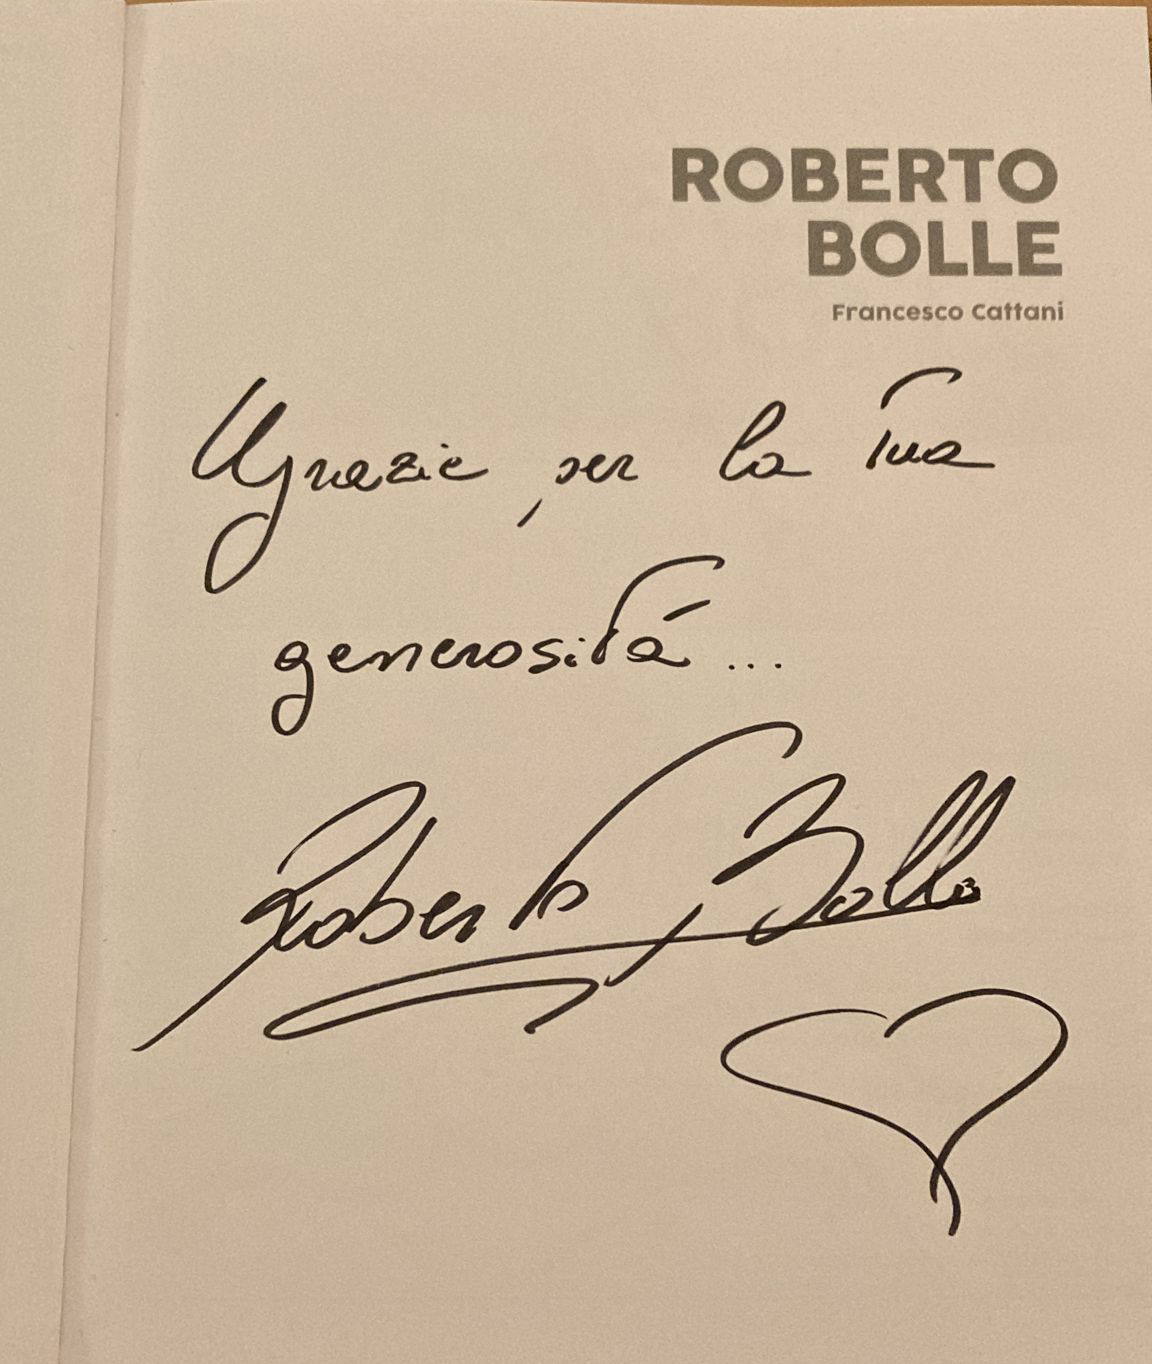 ROBERTO
BOLLE
Francesco Cattani
Grazie per la Tua
generosità...
Roberto Bolle